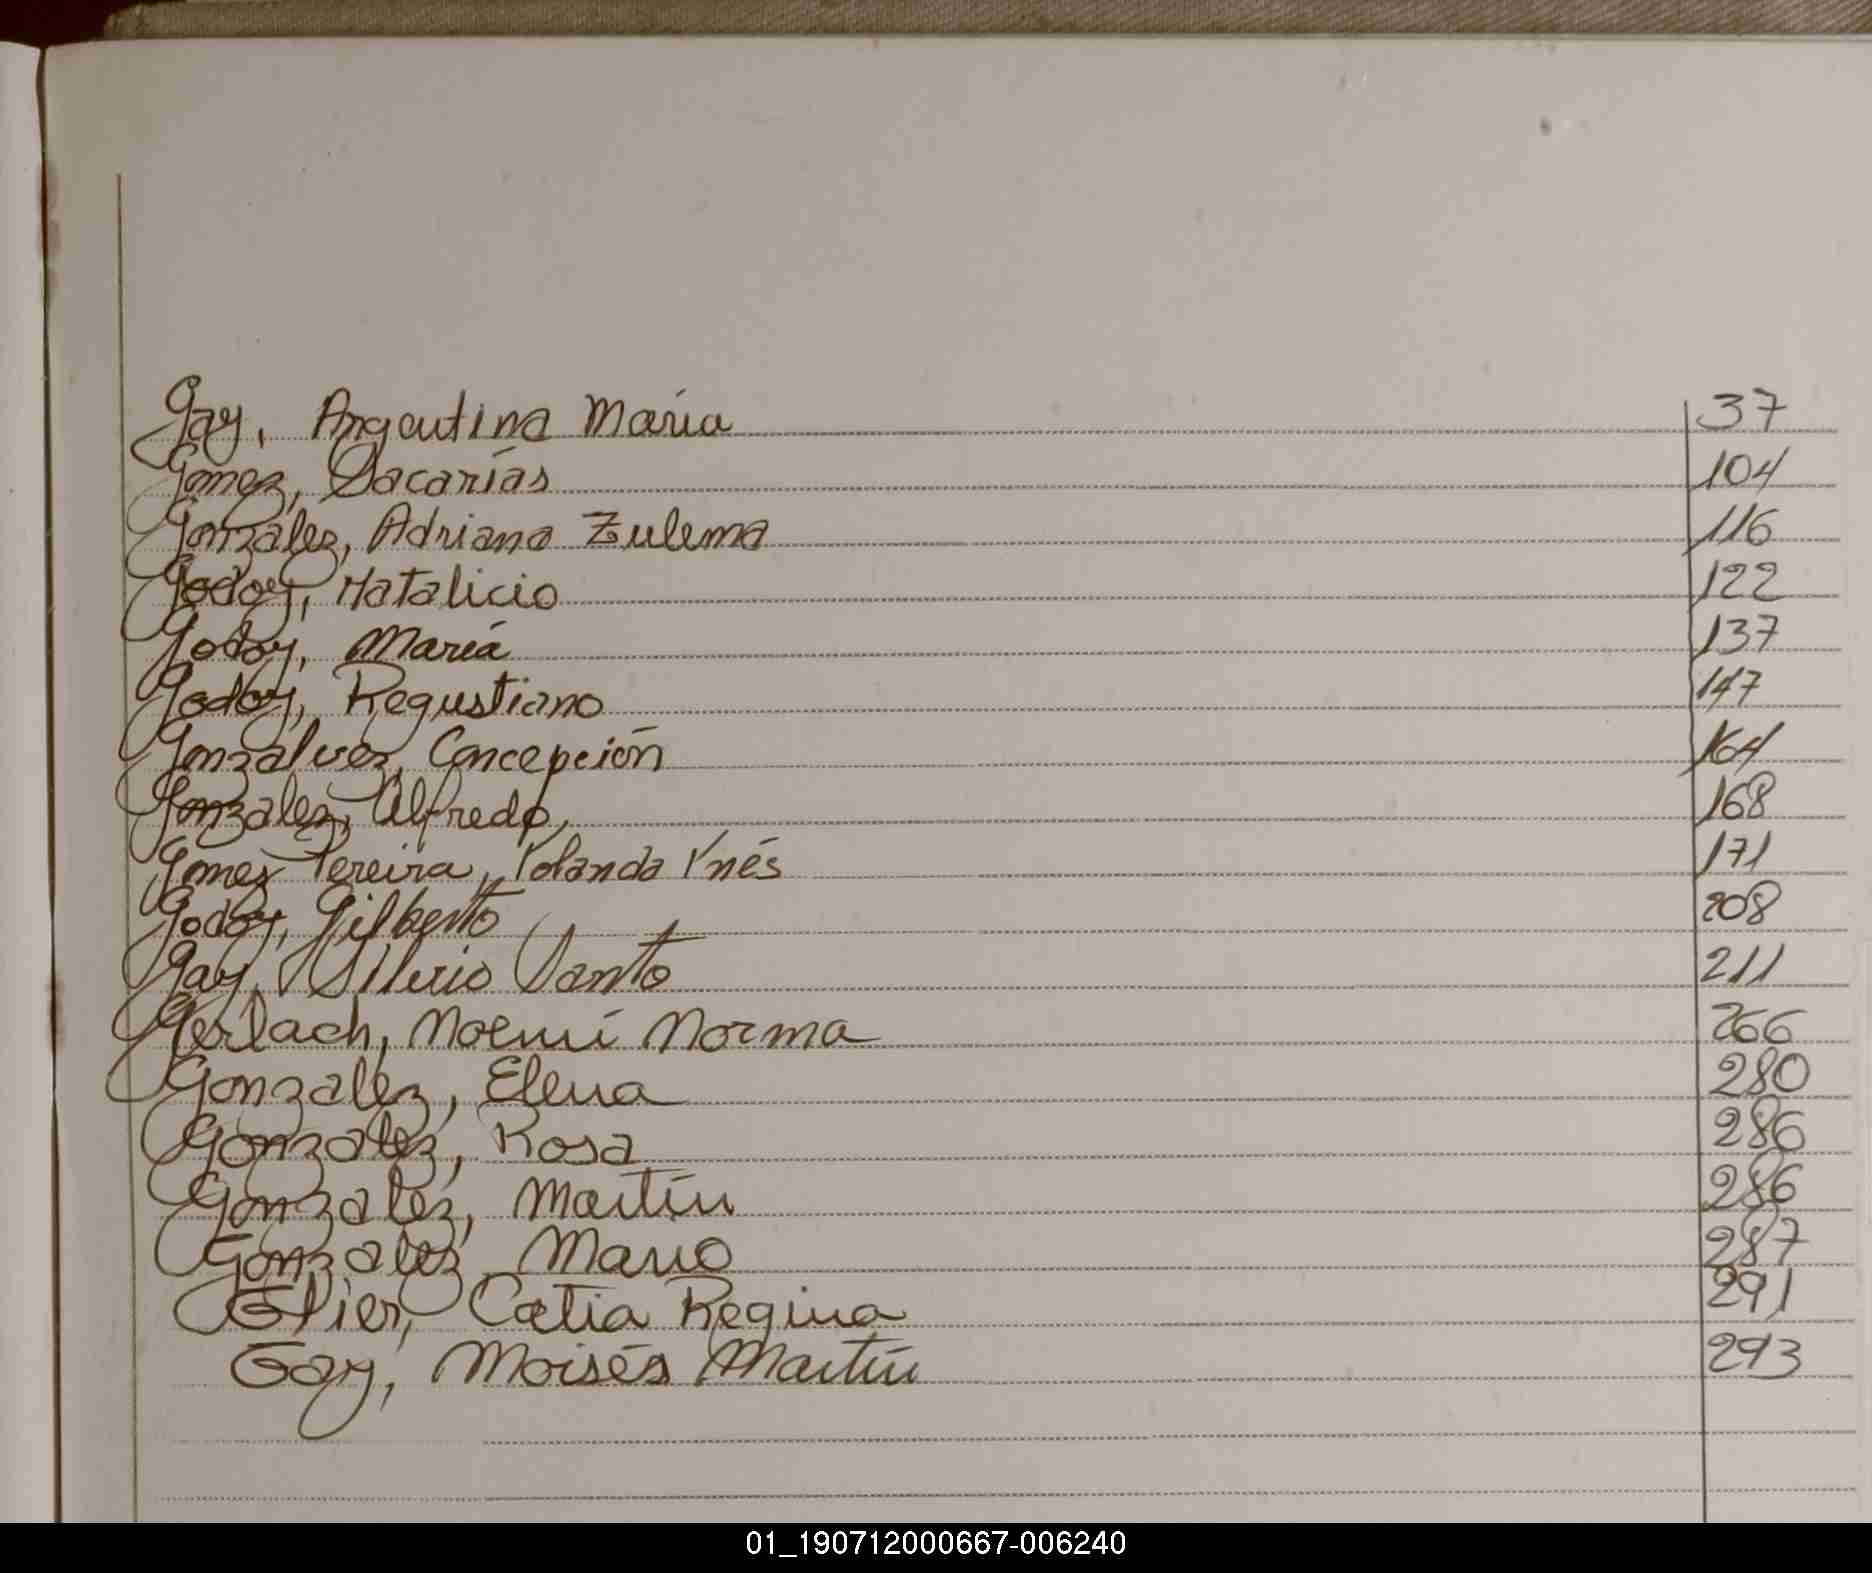 Gay, Argentina María 37
Gomez, Sacarías 104
Gonzalez, Adriana Zulema 116
Godoy, Natalicio 122
Godoy, María 137
Godoy, Regustiano 147
Gonzalvez, Concepción 164
Gonzalez, Alfredo, 168
Gomez Pereira, Yolanda Ynés 171
Godoy, Gilberto 208
Gay, Silverio Santo 211
Gerlach, Noemí Norma 266
Gonzalez, Elena 280
Gonzalez, Rosa 286
Gonzalez, Martín 286
Gonzalez Mario 287
Glier, Catia Regina 291
Gay, Moisés Martín 293
01_190712000667-006240